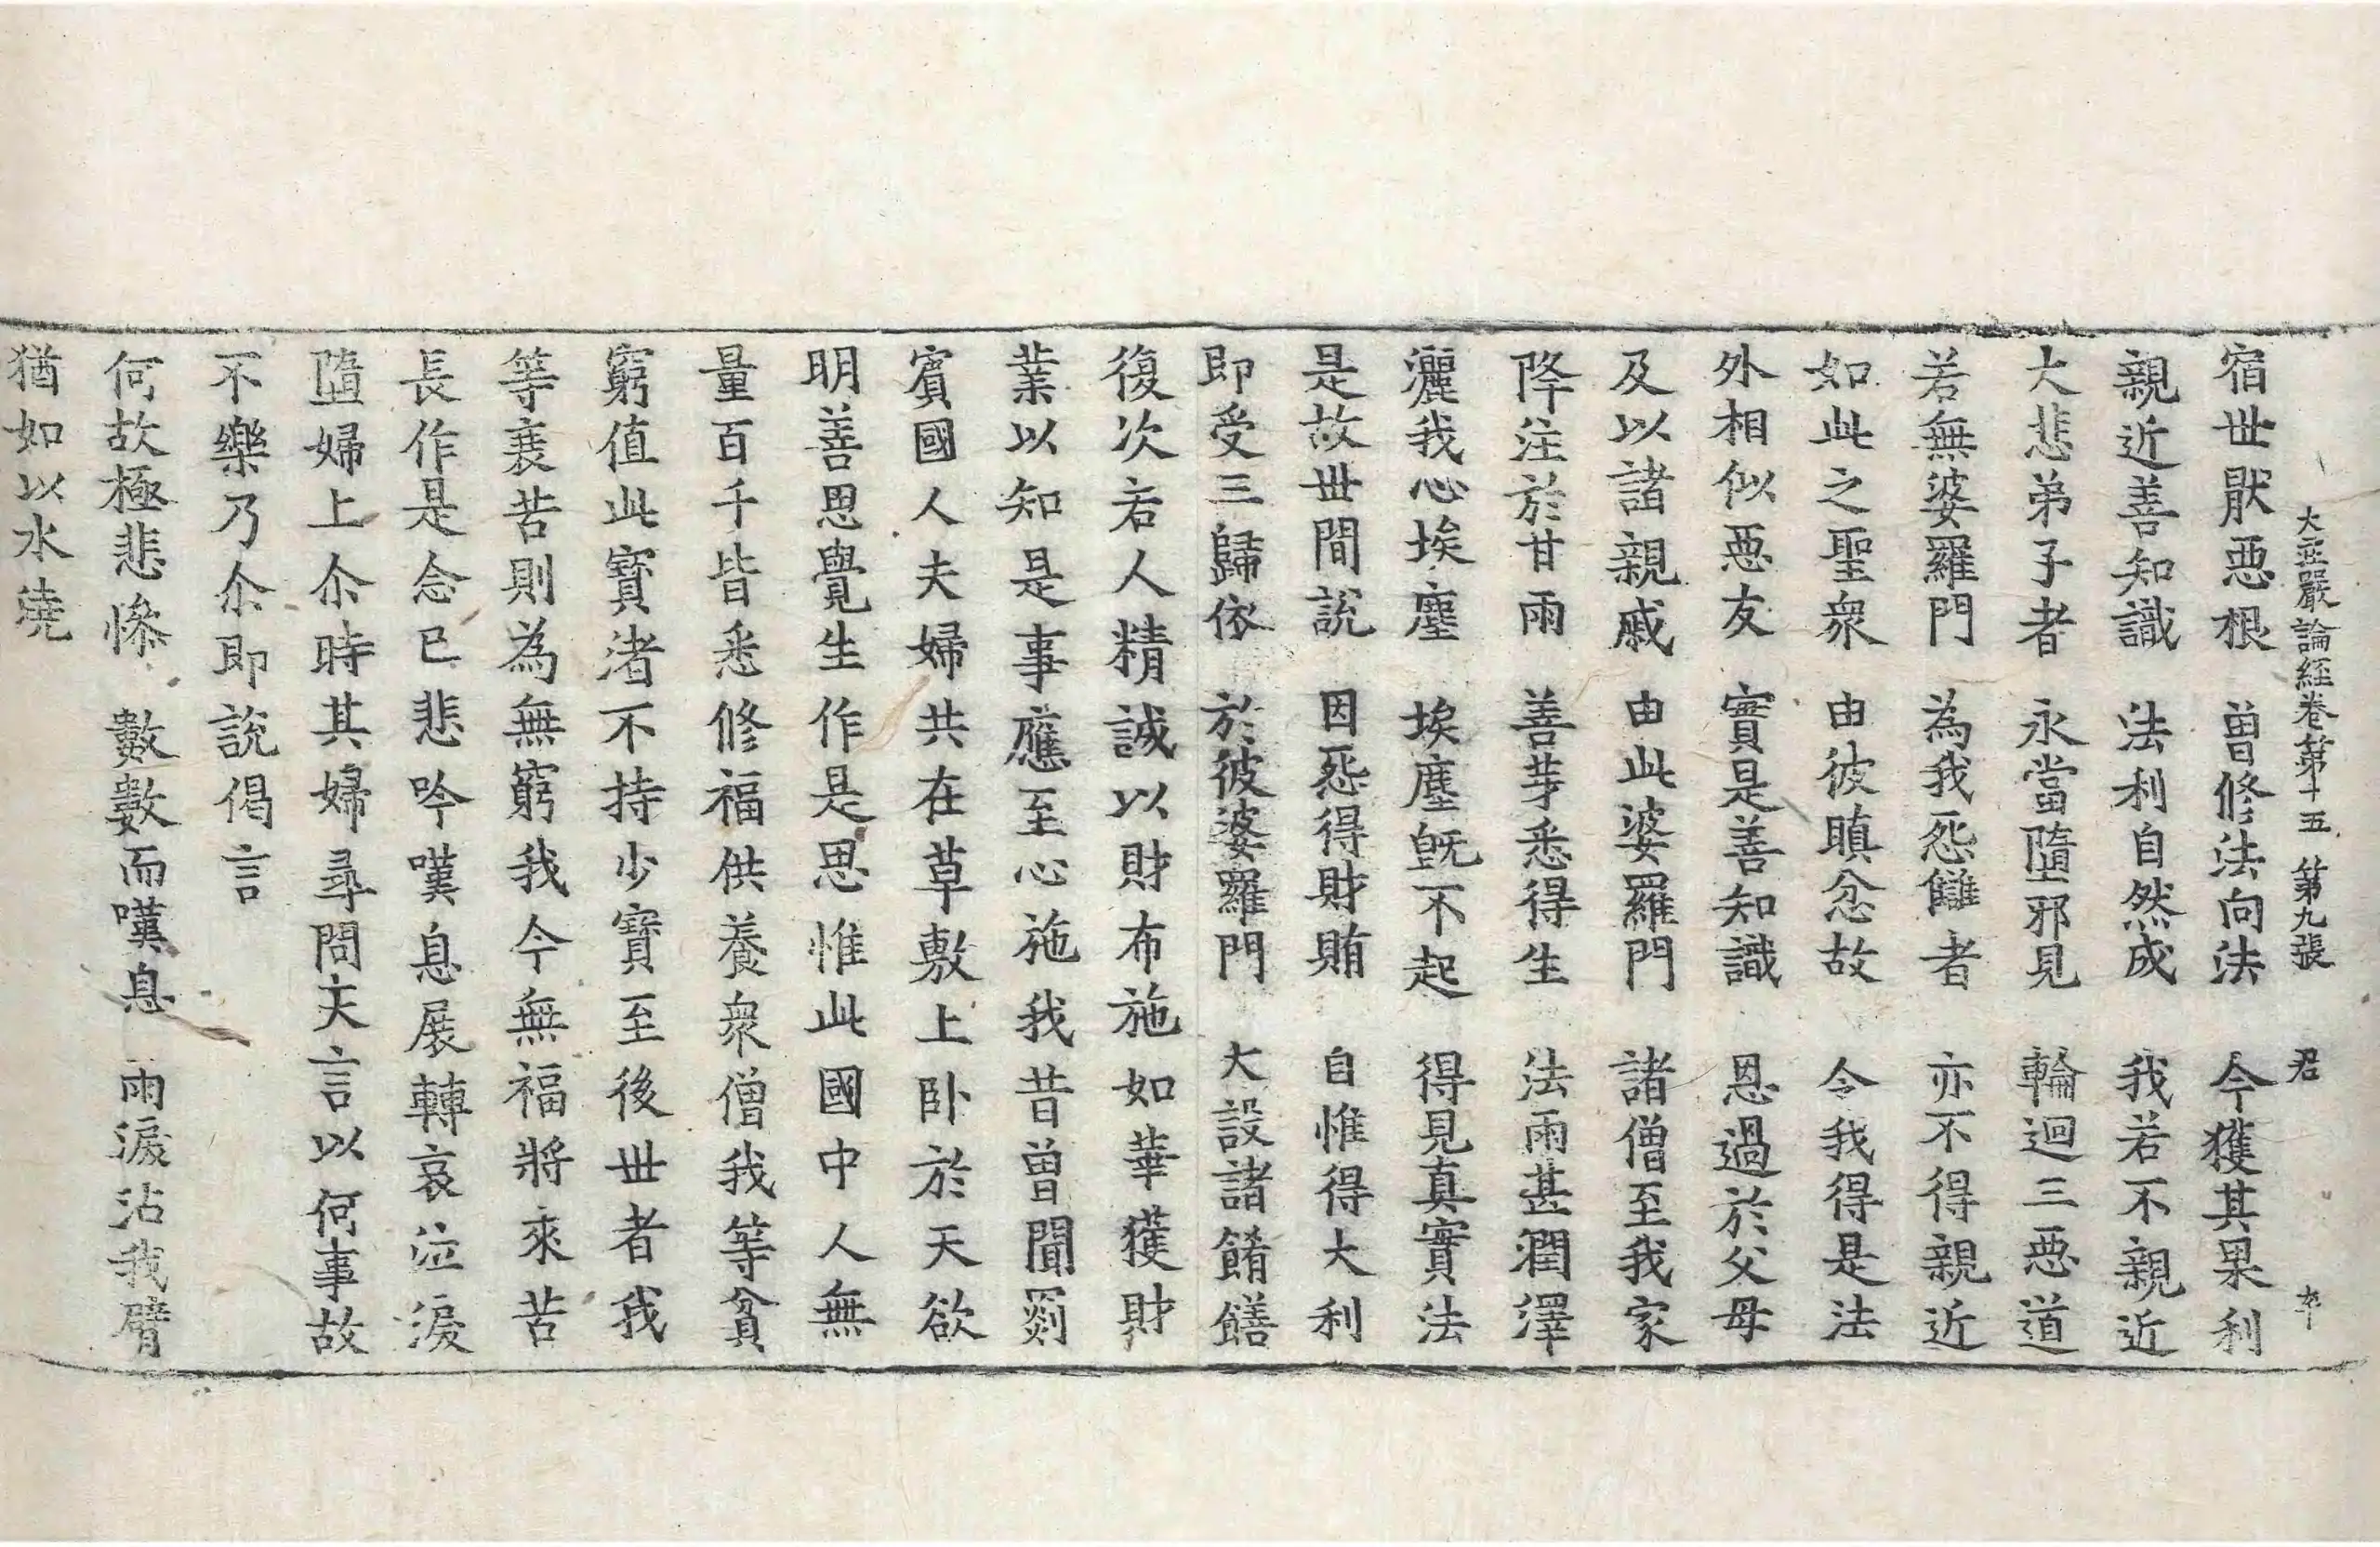 大莊嚴論經卷第十五 第九張 君
宿世厭惡根 曽修法向法 今獲其果利
親近善知識 法利自然成 我若不親近
大悲弟子者 永當墮邪見 輪迴三惡道
若無婆羅門 為我怨讎者 亦不得親近
如此之聖衆 由彼瞋忿故 令我得是法
外相似惡友 實是善知識 恩過於父母
及以諸親戚 由此婆羅門 諸僧至我家
降注於甘雨 善芽悉得生 法雨甚潤澤
灑我心埃塵 埃塵旣不起 得見真實法
是故世間說 因怨得財賄 自惟得大利
即受三歸依 於彼婆羅門 大設諸餚饍
復次若人精誠以財布施如華獲財
業以知是事應至心施我昔曽聞罽
賓國人夫婦共在草敷上卧於天欲
明善思覺生作是思惟此國中人無
量百千皆悉修福供養衆僧我等貧
窮值此寶渚不持少寶至後世者我
等衰苦則為無窮我今無福將來苦
長作是念已悲吟嘆息展轉哀泣淚
墮婦上尒時其婦尋問夫言以何事故
不樂乃尒即說偈言
何故極悲慘 數數而嘆息 雨淚沾我臂
猶如以水澆